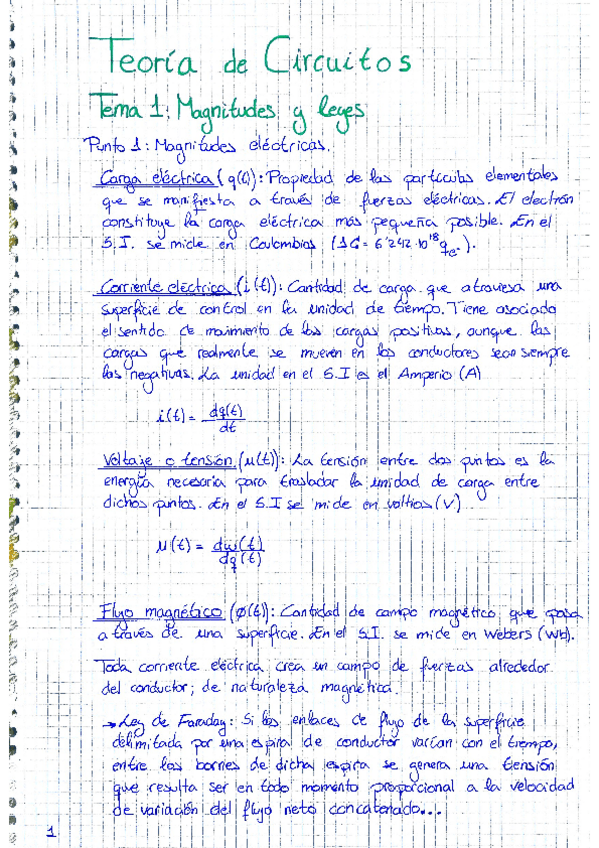 Teoría de Circuitos
Tema 1: Magnitudes y leyes
Punto 1: Magnitudes eléctricas.
Carga eléctrica (q(t)): Propiedad de las partículas elementales
que se manifiesta a través de fuerzas eléctricas. El electrón
constituye la carga eléctrica más pequeña posible. En el
S.I. se mide en Coulombios (1C = 6'242·10¹⁸ qe-).
Corriente eléctrica (i(t)): Cantidad de carga que atraviesa una
superficie de control en la unidad de tiempo. Tiene asociado
el sentido de movimiento de las cargas positivas, aunque las
cargas que realmente se mueven en los conductores sean siempre
las negativas. La unidad en el S.I es el Amperio (A)
i(t) = dq(t)
dt
Voltaje o tensión (u(t)): La tensión entre dos puntos es la
energía necesaria para trasladar la unidad de carga entre
dichos puntos. En el S.I se mide en voltios (V)
u(t) = dw(t)
dq(t)
Flujo magnético (ø(t)): Cantidad de campo magnético que pasa
a través de una superficie. En el S.I. se mide en Webers (Wb).
Toda corriente eléctrica crea un campo de fuerzas alrededor
del conductor; de naturaleza magnética.
→ Ley de Faraday: Si los enlaces de flujo de la superficie
delimitada por una espira de conductor varían con el tiempo,
entre los bornes de dicha espira se genera una tensión
que resulta ser en todo momento proporcional a la velocidad
de variación del flujo neto concatenado...
1